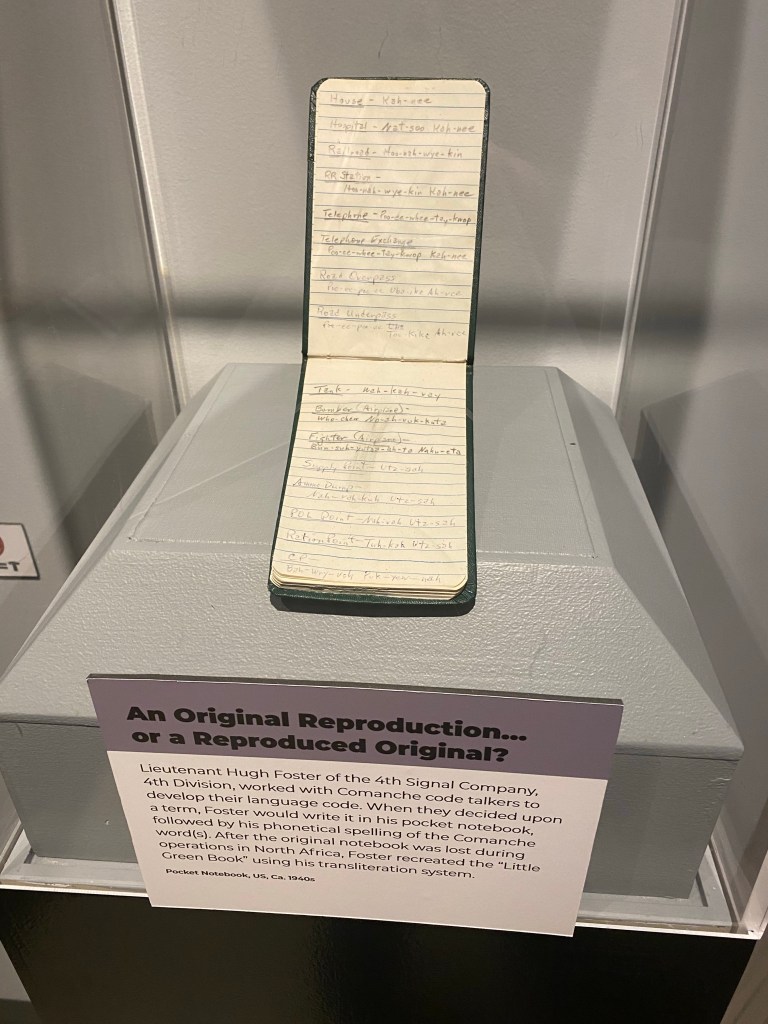 House - Kah-nee
Hospital - Nat-soo Kah-nee
Railroad - Hoo-nah-wye-kin
RR Station -
Hoo-nah-wye-kin Kah-nee
Telephone -
Telephone Exchange
Kah-nee
Road Overpass
Road Underpass
Tank - Wah-kah-ray
Bomber (Airplane) -
Fighter (Airplane) -
Supply Point - Utz-sah
Ammo Dump -
Utz-sah
POL Point - Utz-sah
Ration Point - Tuh-kah Utz-sah
CP
=T
An Original Reproduction...
or a Reproduced Original?
Lieutenant Hugh Foster of the 4th Signal Company,
4th Division, worked with Comanche code talkers to
develop their language code. When they decided upon
a term, Foster would write it in his pocket notebook,
followed by his phonetical spelling of the Comanche
word(s). After the original notebook was lost during
operations in North Africa, Foster recreated the "Little
Green Book" using his transliteration system.
Pocket Notebook, US, Ca. 1940s